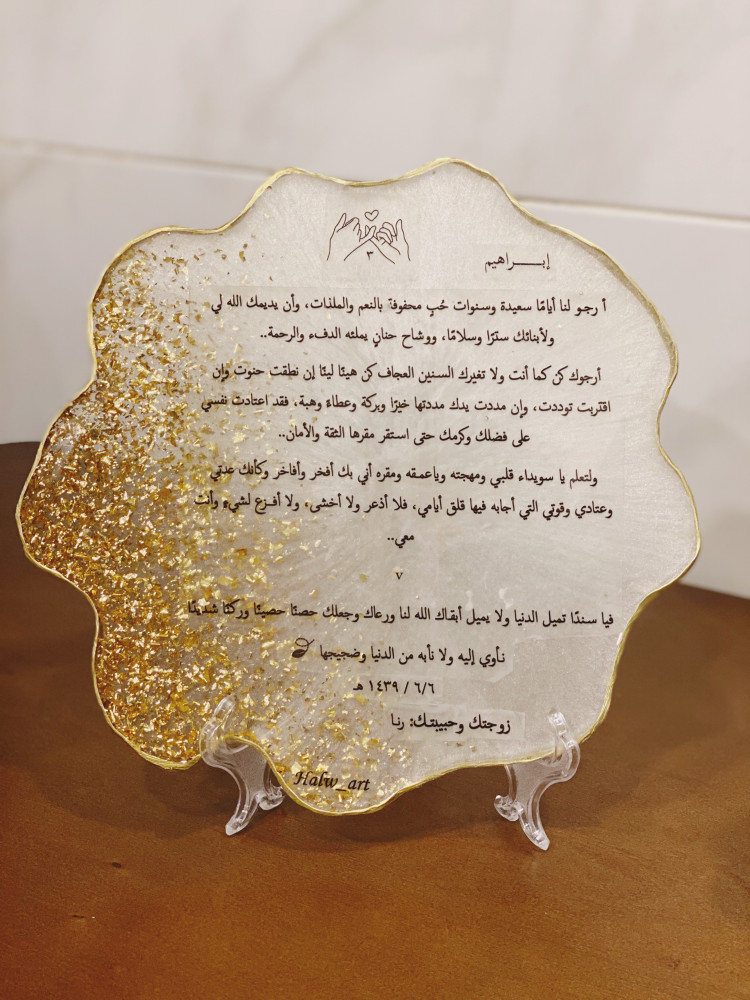 ٣
إبـــراهيم
أرجو لنا أيامًا سعيدة وسنوات حُبٍ محفوفة بالنعم والملذات، وأن يديمك الله لي
ولأبنائك سترًا وسلامًا، ووشاح حنانٍ يملئه الدفء والرحمة..
أرجوك كن كما أنت ولا تغيرك السنين العجاف كن هينًا لينًا إن نطقت حنوت وإن
اقتربت توددت، وإن مددت يدك مددتها خيرًا وبركة وعطاءً وهبة، فقد اعتادت نفسي
على فضلك وكرمك حتى استقر مقرها الثقة والأمان..
ولتعلم يا سويداء قلبي ومهجته وياعمقه ومقره أني بك أفخر وأفاخر وكأنك عدتي
وعتادي وقوتي التي أجابه فيها قلق أيامي، فلا أذعر ولا أخشى، ولا أفـزع لشيءٍ وأنت
معي..
v
فيا سندًا تميل الدنيا ولا يميل أبقاك الله لنا ورعاك وجعلك حصنًا حصينًا وركنًا شديدًا
نأوي إليه ولا نأبه من الدنيا وضجيجها
٦/٦ / ١٤٣٩ هـ
زوجتك وحبيبتـك: رنـا
Halw_art